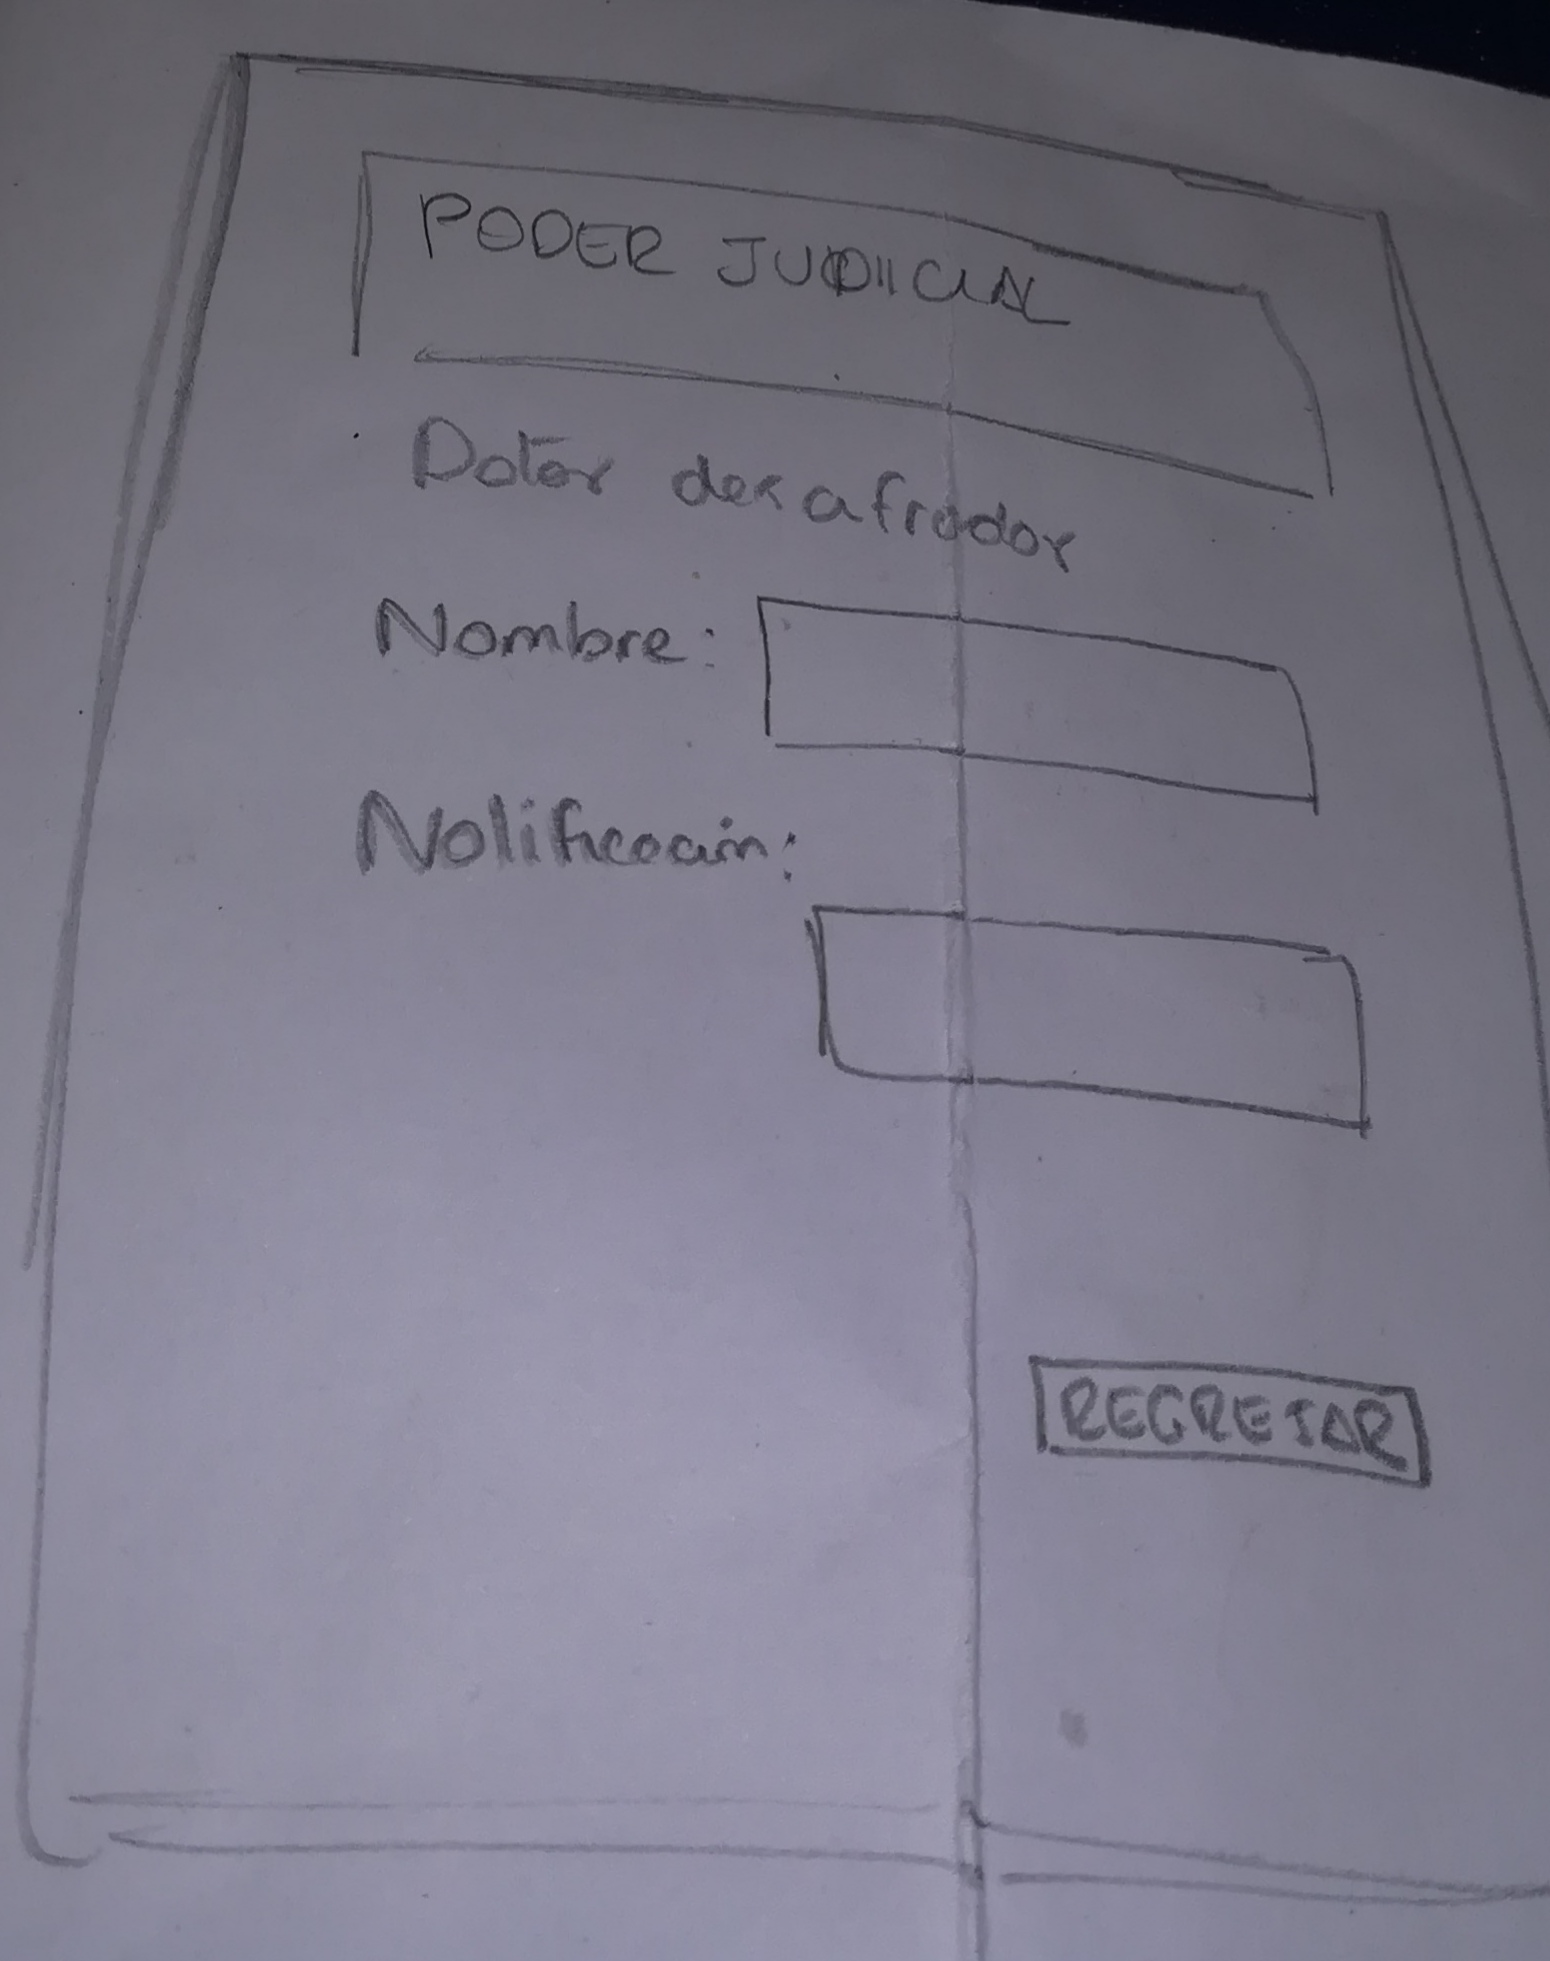 PODER JUDIICIAL
Datos des afrador
Nombre:
Notificación:
REGRESAR